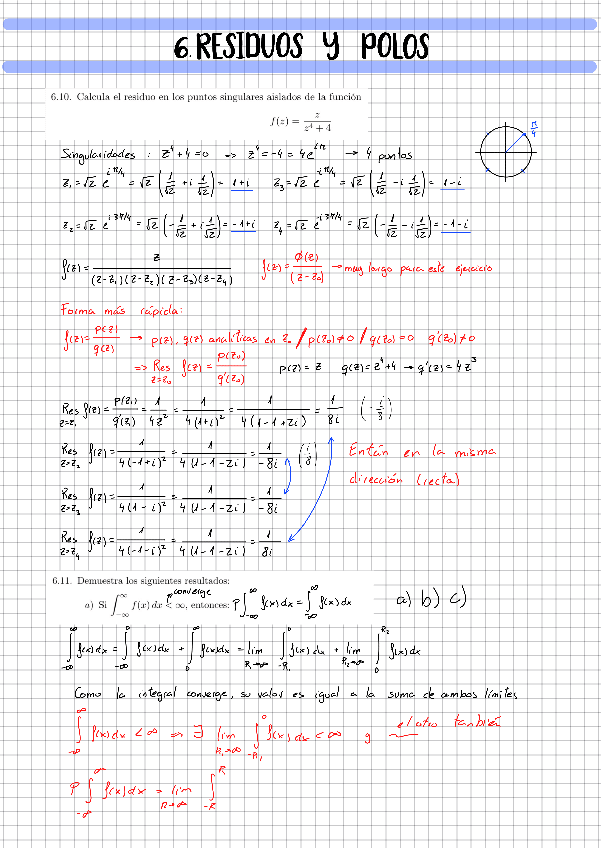 6. RESIDUOS Y POLOS
6.10. Calcula el residuo en los puntos singulares aislados de la función
f(z) = z / (z⁴ + 4)
π/4
Singularidades : z⁴+4=0 => z⁴=-4 = 4e^{iπ} → 4 puntos
z₁=√2 e^{iπ/4} = √2 (1/√2 + i 1/√2) = 1+i z₃=√2 e^{-iπ/4} = √2 (1/√2 - i 1/√2) = 1-i
z₂=√2 e^{i3π/4} = √2 (-1/√2 + i 1/√2) = -1+i z₄=√2 e^{-i3π/4} = √2 (-1/√2 - i 1/√2) = -1-i
f(z) = z / ((z-z₁)(z-z₂)(z-z₃)(z-z₄)) f(z) = Φ(z) / (z-z₀) → muy largo para este ejercicio
Forma más rápida:
f(z) = p(z)/q(z) → p(z), q(z) analíticas en z₀ / p(z₀)≠0 / q(z₀)=0 q'(z₀)≠0
=> Res z=z₀ f(z) = p(z₀)/q'(z₀) p(z)=z q(z)=z⁴+4 → q'(z)=4z³
Res z=z₁ f(z) = p(z₁)/q'(z₁) = 1/4z² = 1/4(1+i)² = 1/4(1-1+2i) = 1/8i (-i/8)
Res z=z₂ f(z) = 1/4(-1+i)² = 1/4(1-1-2i) = 1/-8i (i/8)
Están en la misma
dirección (recta)
Res z=z₃ f(z) = 1/4(1-i)² = 1/4(1-1-2i) = 1/-8i
Res z=z₄ f(z) = 1/4(-1-i)² = 1/4(1-1-2i) = 1/8i
6.11. Demuestra los siguientes resultados:
converge
a) Si ∫_{-∞}^{∞} f(x) dx < ∞, entonces: P∫_{-∞}^{∞} f(x)dx = ∫_{-∞}^{∞} f(x)dx a) b) c)
∫_{-∞}^{∞} f(x)dx = ∫_{-∞}^{0} f(x)dx + ∫_{0}^{∞} f(x)dx = lim R→∞ ∫_{-R₁}^{0} f(x)dx + lim R₂→∞ ∫_{0}^{R₂} f(x)dx
Como la integral converge, su valor es igual a la suma de ambos límites,
∫_{-∞}^{∞} f(x)dx < ∞ => ∃ lim R₁→∞ ∫_{-R₁}^{0} f(x)dx < ∞ y el otro también
P∫_{-∞}^{∞} f(x)dx = lim R→∞ ∫_{-R}^{R}